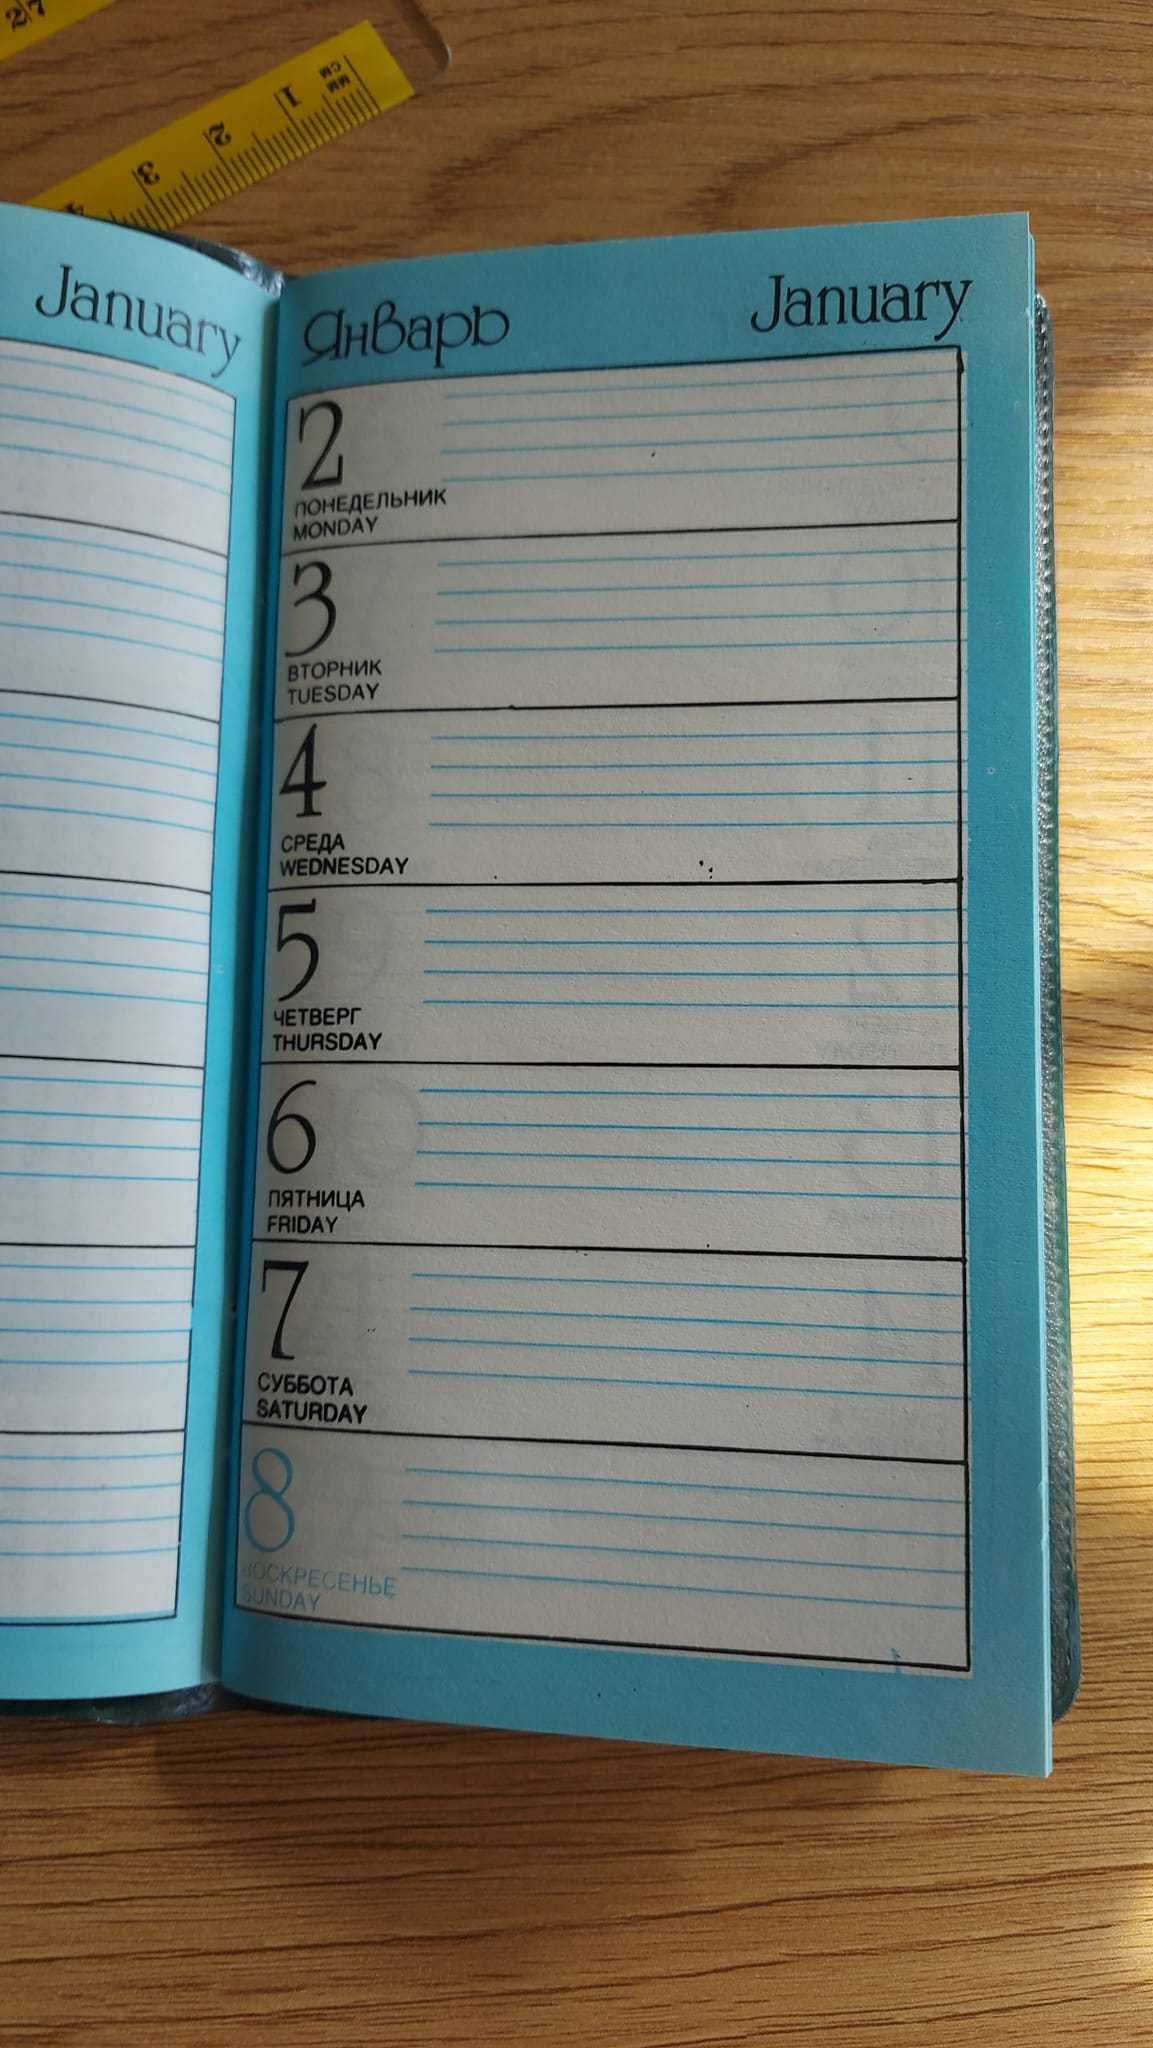 27
мм
см
1
2
3
4
January
Январь January
2
ПОНЕДЕЛЬНИК
MONDAY
3
ВТОРНИК
TUESDAY
4
СРЕДА
WEDNESDAY
5
ЧЕТВЕРГ
THURSDAY
6
ПЯТНИЦА
FRIDAY
7
СУББОТА
SATURDAY
8
ВОСКРЕСЕНЬЕ
SUNDAY